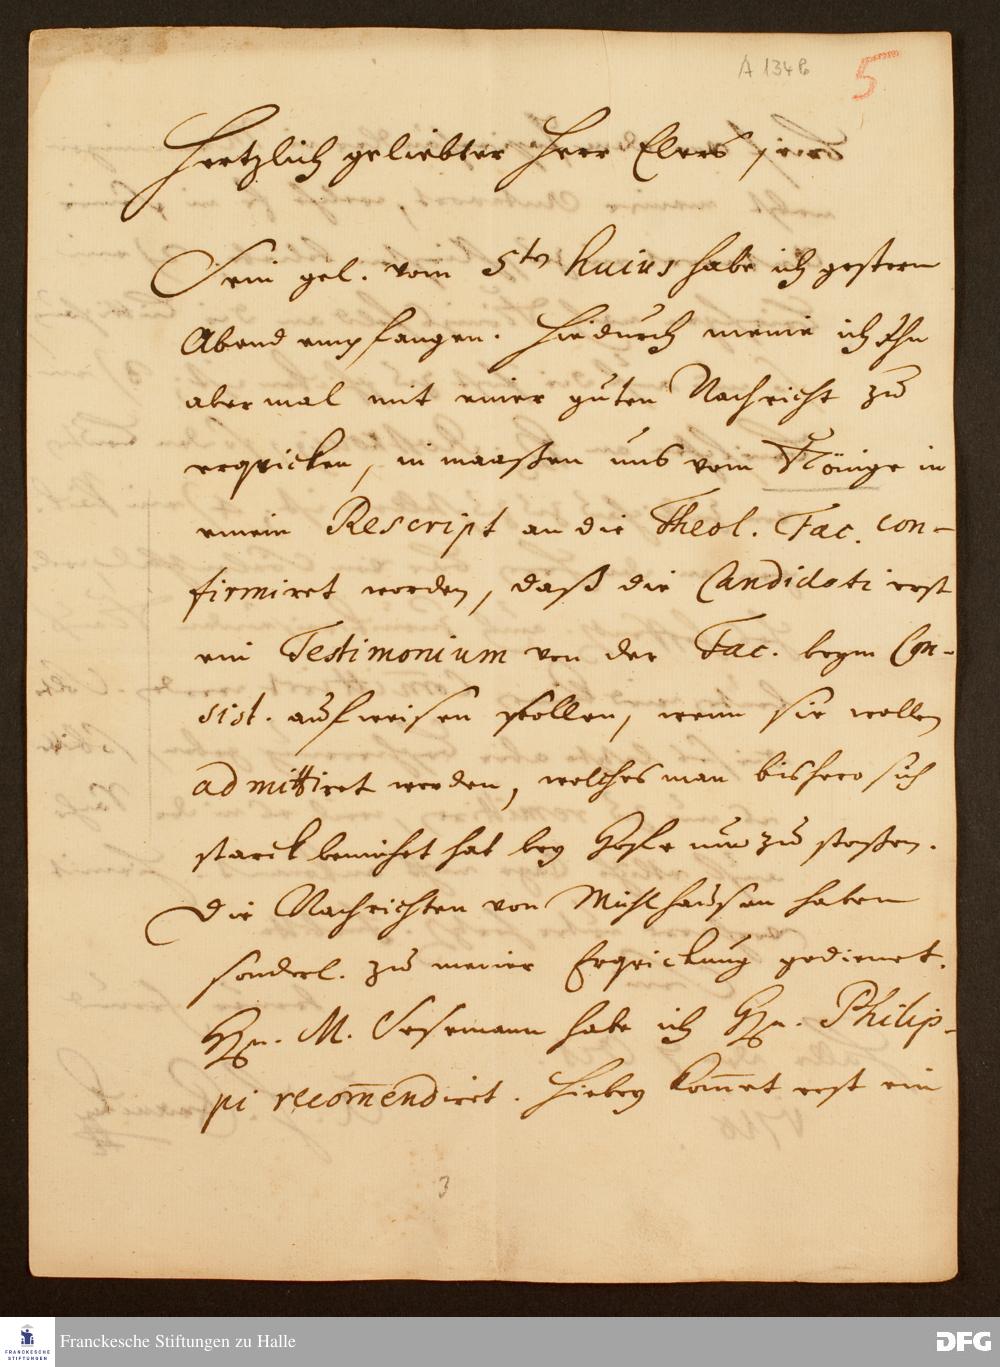 A 134 b
5
Hertzlich geliebter Herr Elers,
Sein gel. vom 5ten huius habe ich gestern
Abend empfangen. Hiedurch meine ich Ihn
abermal mit einer guten Nachricht zu
erqvicken, in maaßen uns vom Könige in
einem Rescript an die Theol. Fac. con-
firmiret worden, daß die Candidati erst
ein Testimonium von der Fac. beym Con-
sist. aufweisen sollen, wenn sie wollen
admittiret werden, welches man bishero sich
starck bemühet hat bey Hofe um zu stoßen.
Die Nachrichten von Mühlhausen haben
sonderl. zu meiner Erqvickung gedienet.
Hrn. M. Sesemann habe ich Hrn. Philip-
pi recom̅endiret. Hiebey kom̅et erst ein
3
Franckesche Stiftungen zu Halle
FRANCKESCHE
STIFTUNGEN
DFG